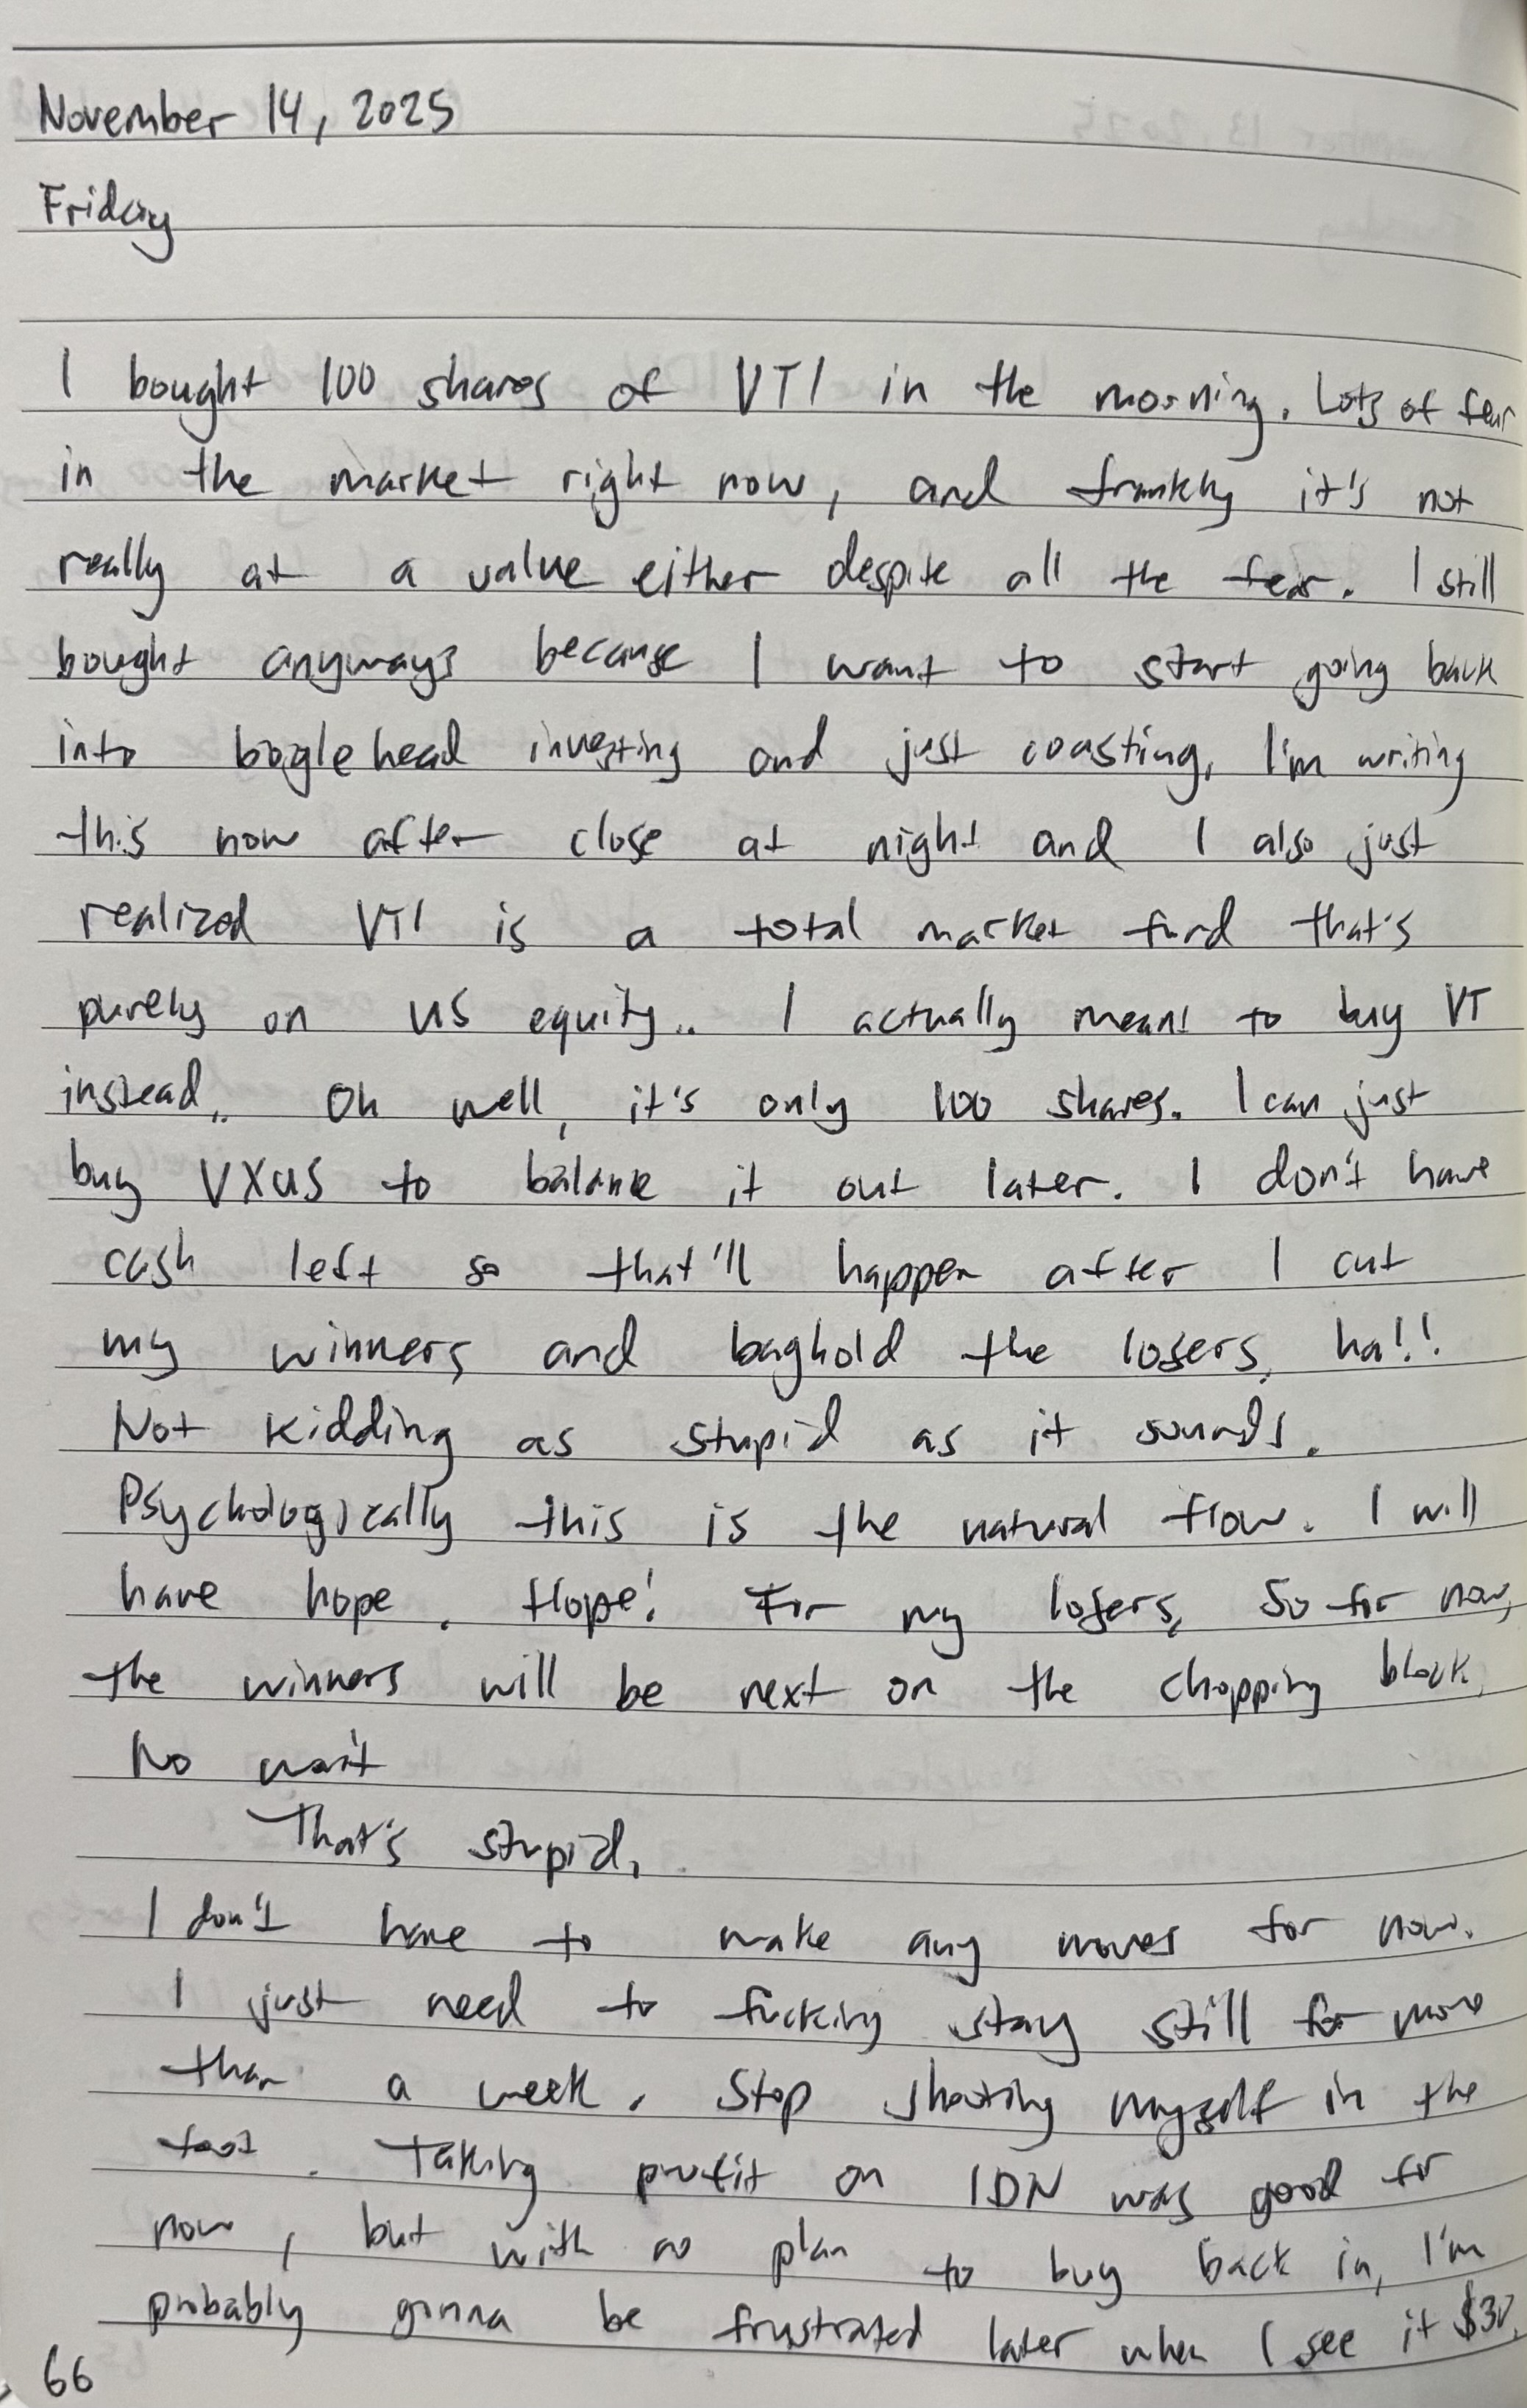 November 14, 2025
Friday
I bought 100 shares of VTI in the morning. Lots of fear
in the market right now, and frankly it's not
really at a value either despite all the fear. I still
bought anyways because I want to start going back
into boglehead investing and just coasting. I'm writing
this now after close at night and I also just
realized VTI is a total market fund that's
purely on US equity.. I actually meant to buy VT
instead.. Oh well, it's only 100 shares. I can just
buy VXUS to balance it out later. I don't have
cash left so that'll happen after I cut
my winners, and baghold the losers, ha!!
Not kidding as stupid as it sounds.
Psychologically this is the natural flow. I will
have hope. Hope! For my losers, So for now,
the winners will be next on the chopping block.
No wait
That's stupid.
I don't have to make any moves for now.
I just need to fucking stay still for more
than a week. Stop shooting myself in the
foot. Taking profit on IDN was good for
now, but with no plan to buy back in, I'm
probably gonna be frustrated later when I see it $30.
66